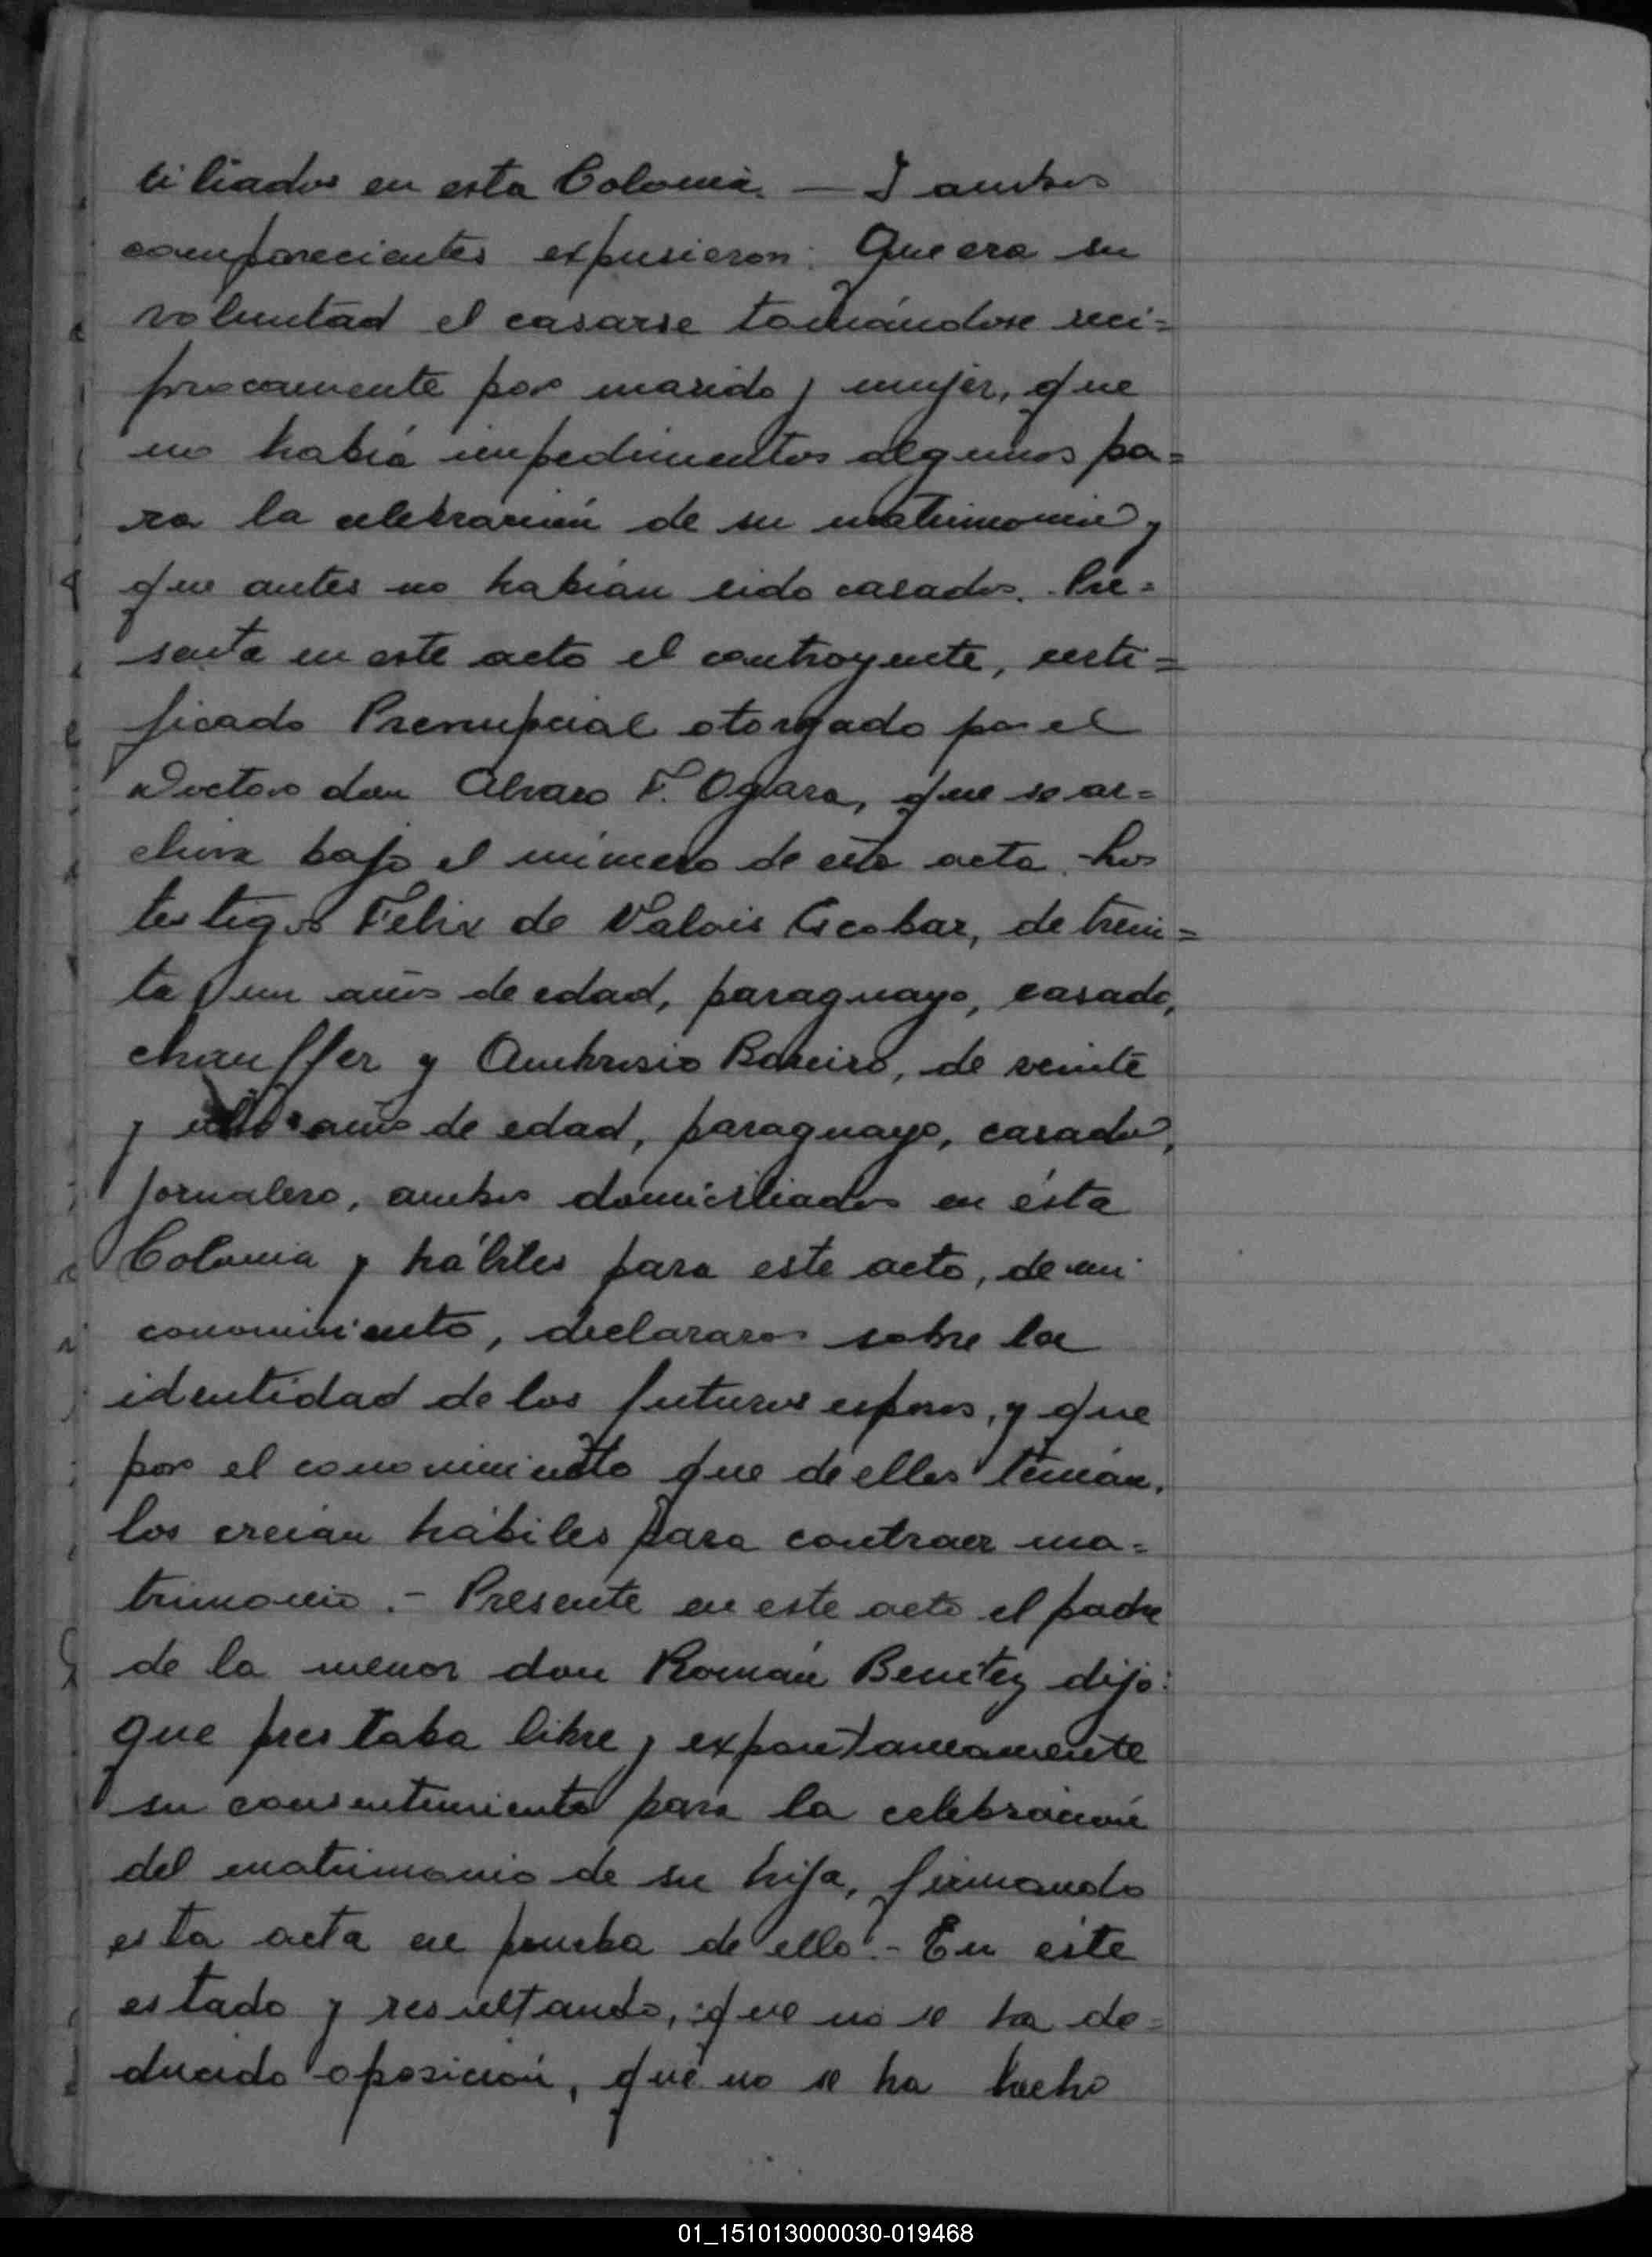 ciliados en esta Colonia. — I ambos
comparecientes expusieron: Que era su
voluntad el casarse tomándose reci=
procamente por marido y mujer, que
no había impedimentos algunos pa=
ra la celebración de su matrimonio y
que antes no habían sido casados. Pre=
senta en este acto el contrayente, certi=
ficado Prenupcial otorgado por el
Doctor don Alvaro F. Ogara, que se ar=
chiva bajo el número de esta acta. Los
testigos Felix de Valois Escobar, de trein=
ta y un años de edad, paraguayo, casado,
chauffer y Ambrosio Bareiro, de veinte
y años de edad, paraguayo, casado,
jornalero, ambos domiciliados en ésta
Colonia y hábiles para este acto, de mi
conocimiento, declararon sobre la
identidad de los futuros esposos, y que
por el conocimiento que de ellos tenían,
los creían hábiles para contraer ma=
trimonio.- Presente en este acto el padre
de la menor don Román Benítez dijo:
que prestaba libre y expontaneamente
su consentimiento para la celebración
del matrimonio de su hija, firmando
esta acta en prueba de ello.- En éste
estado y resultando, que no se ha de=
ducido oposición, que no se ha hecho
01_151013000030-019468